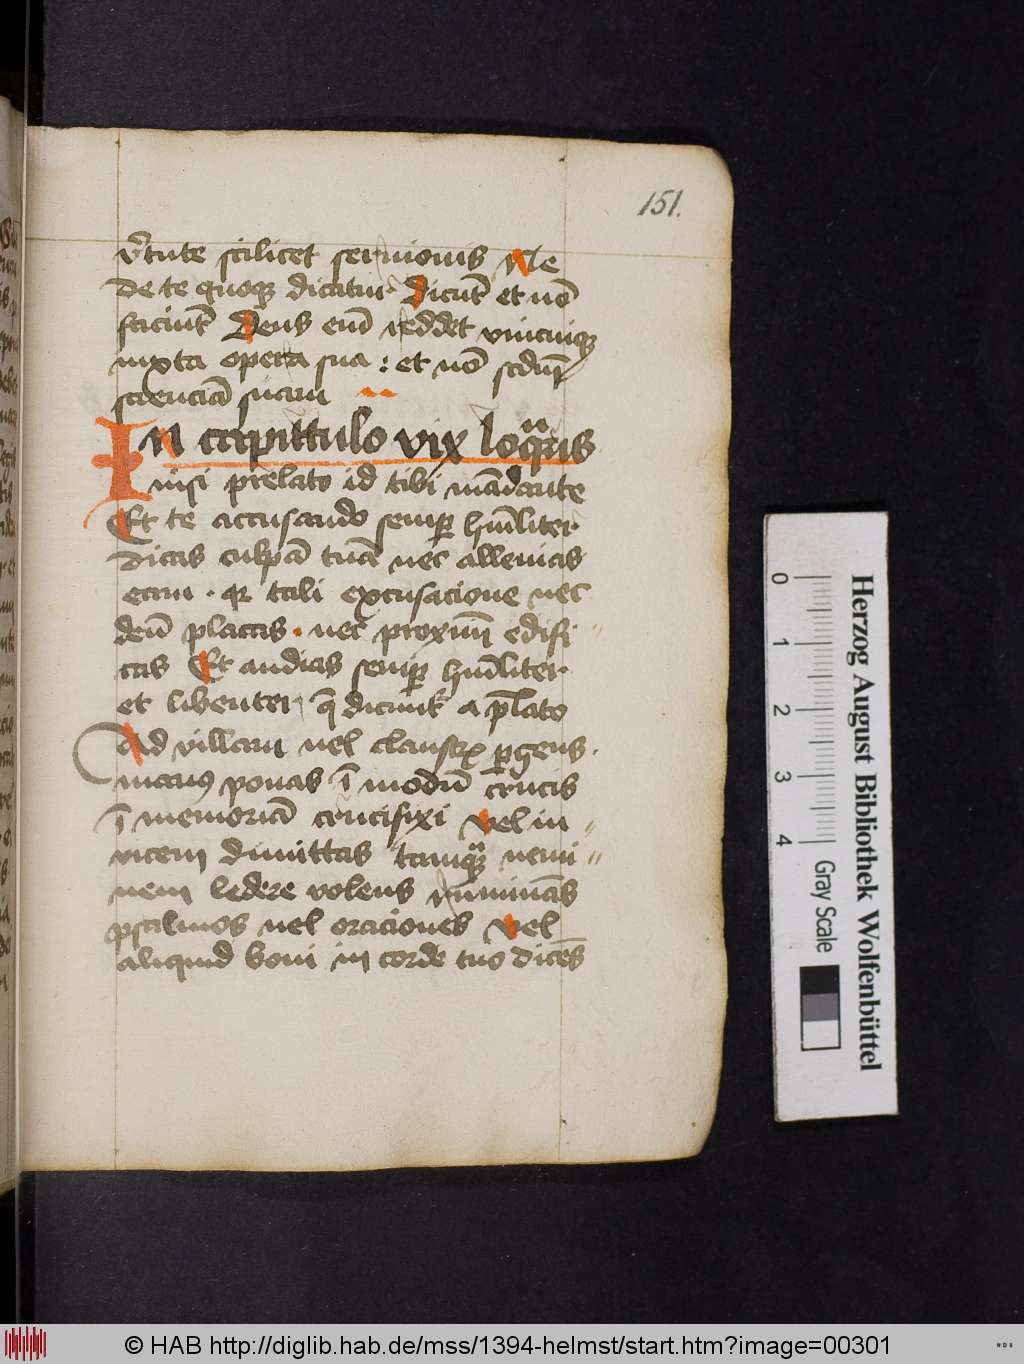 151.
v̾tute scilicet sermonis Ne
de te quoqꝫ dicatur Dicūt et nō
faciūt Deus eīm reddet vnicuiqꝫ
iuxta opera sua : et nō scdūm
scienciā suam
In capittulo vix loqͣris
nisi prelato id tibi mādante
Et te accusando semꝑ hūiliter
dicas culpā tuā nec allenias
eam . qꝛ tali excusacione nec
deū placas . nec proximū edifi
cas Et audias semꝑ hūiliter
et libenter q̄ dicūnt̾ a p̄lato
Ad villam uel claustꝝ ꝑgens .
manꝰ ponas ī modū crucis
ī memoriā crucifixi Vel in
uicem dimittas tamqͣꝫ nemi
nem ledere volens ruminās
psalmos uel oraciones Vel
aliquid boni in corde tuo dicēs
Herzog August Bibliothek Wolfenbüttel
0 1 2 3 4 Gray Scale
© HAB http://diglib.hab.de/mss/1394-helmst/start.htm?image=00301